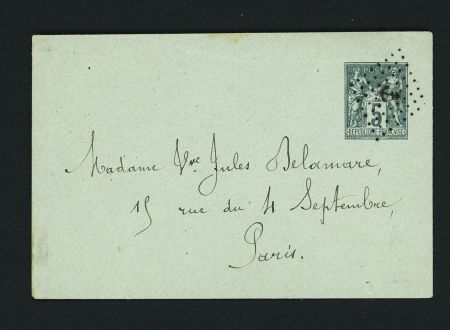 POSTES
5
REPUBLIQUE FRANCAISE
Madame Vve Jules Delamare,
15 rue du 4 Septembre,
Paris.